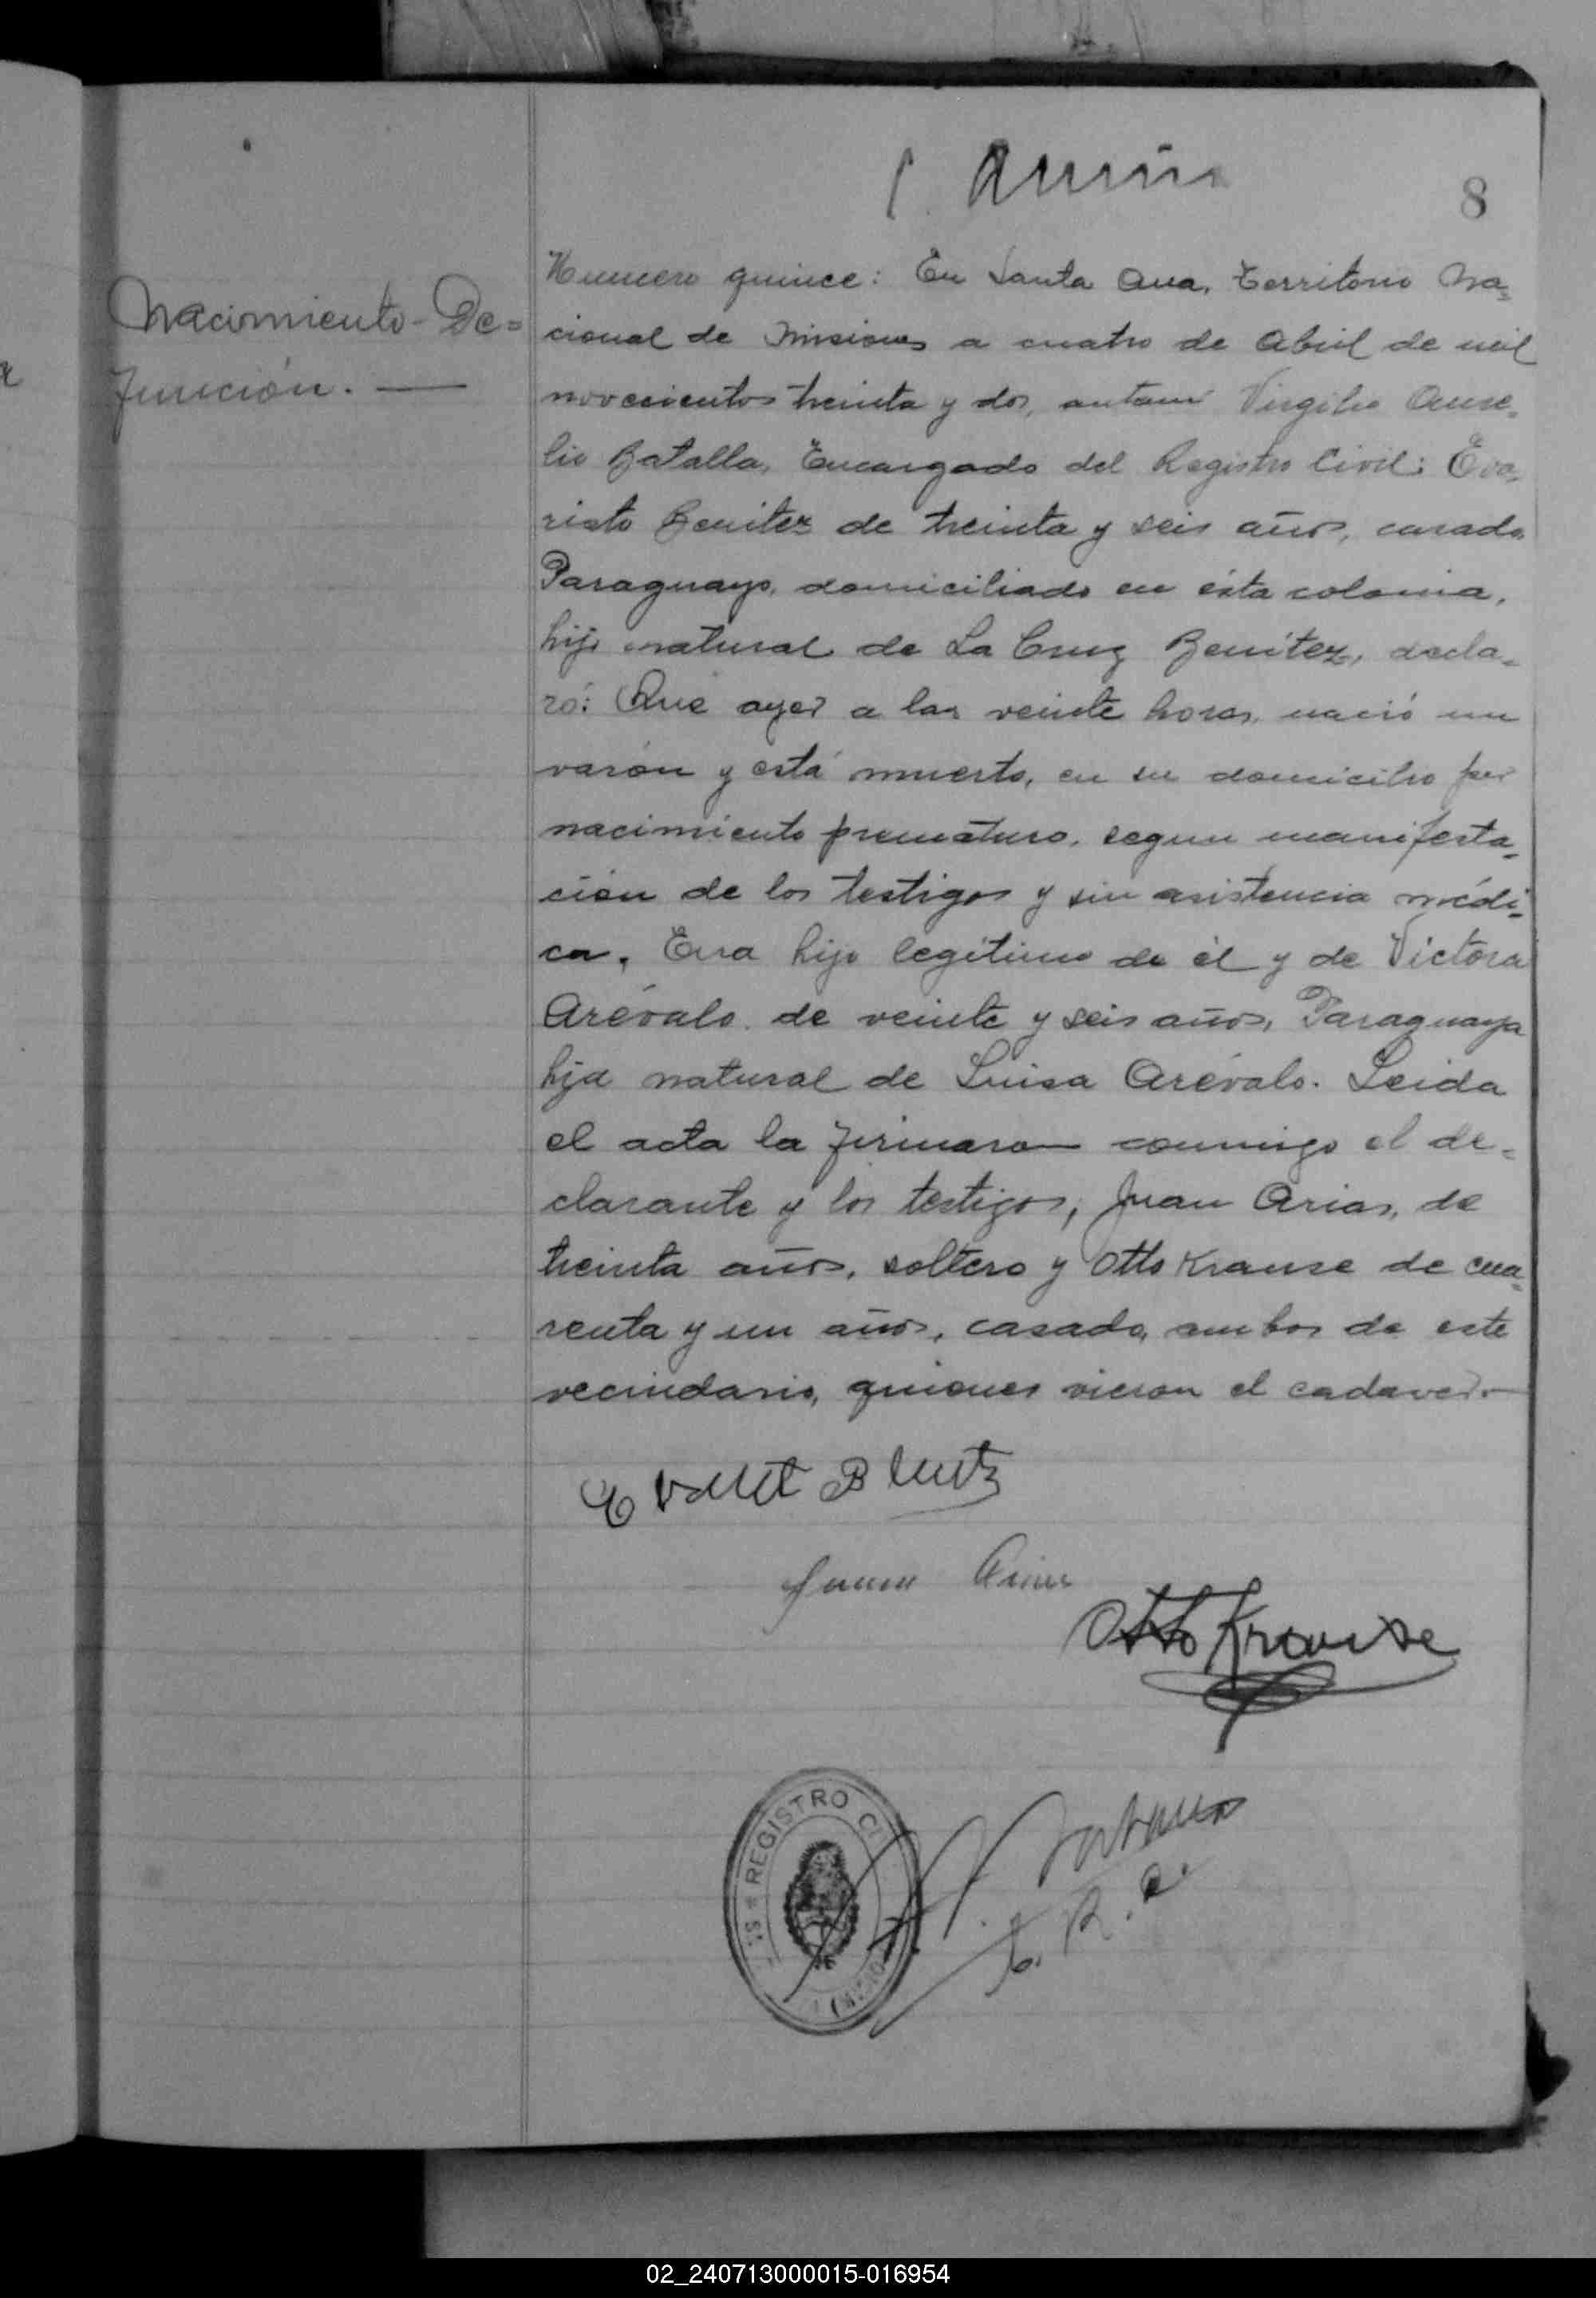 8
Nacimiento-De=
función. —
Numero quince: En Santa Ana, Territorio Na-
cional de Misiones a cuatro de Abril de mil
novecientos treinta y dos, antemi Virgilio Aure-
lio Batalla, Encargado del Registro Civil: Eva-
risto Benitez de treinta y seis años, casado
Paraguayo, domiciliado en ésta colonia,
hijo natural de La Cruz Benítez, decla-
ró: Que ayer a las veinte horas, nació un
varón y está muerto, en su domicilio por
nacimiento prematuro, segun manifesta-
ción de los testigos y sin asistencia médi-
ca. Era hijo legítimo de él y de Victora
Arévalo, de veinte y seis años, Paraguaya
hija natural de Luisa Arévalo. Leida
el acta la firmaron conmigo el de-
clarante y los testigos; Juan Arias, de
treinta años, soltero y Otto Krause de cua-
renta y un años, casado, ambos de este
vecindario, quienes vieron el cadaver.—
Juan Arias
Otto Krause
REGISTRO CI
02_240713000015-016954